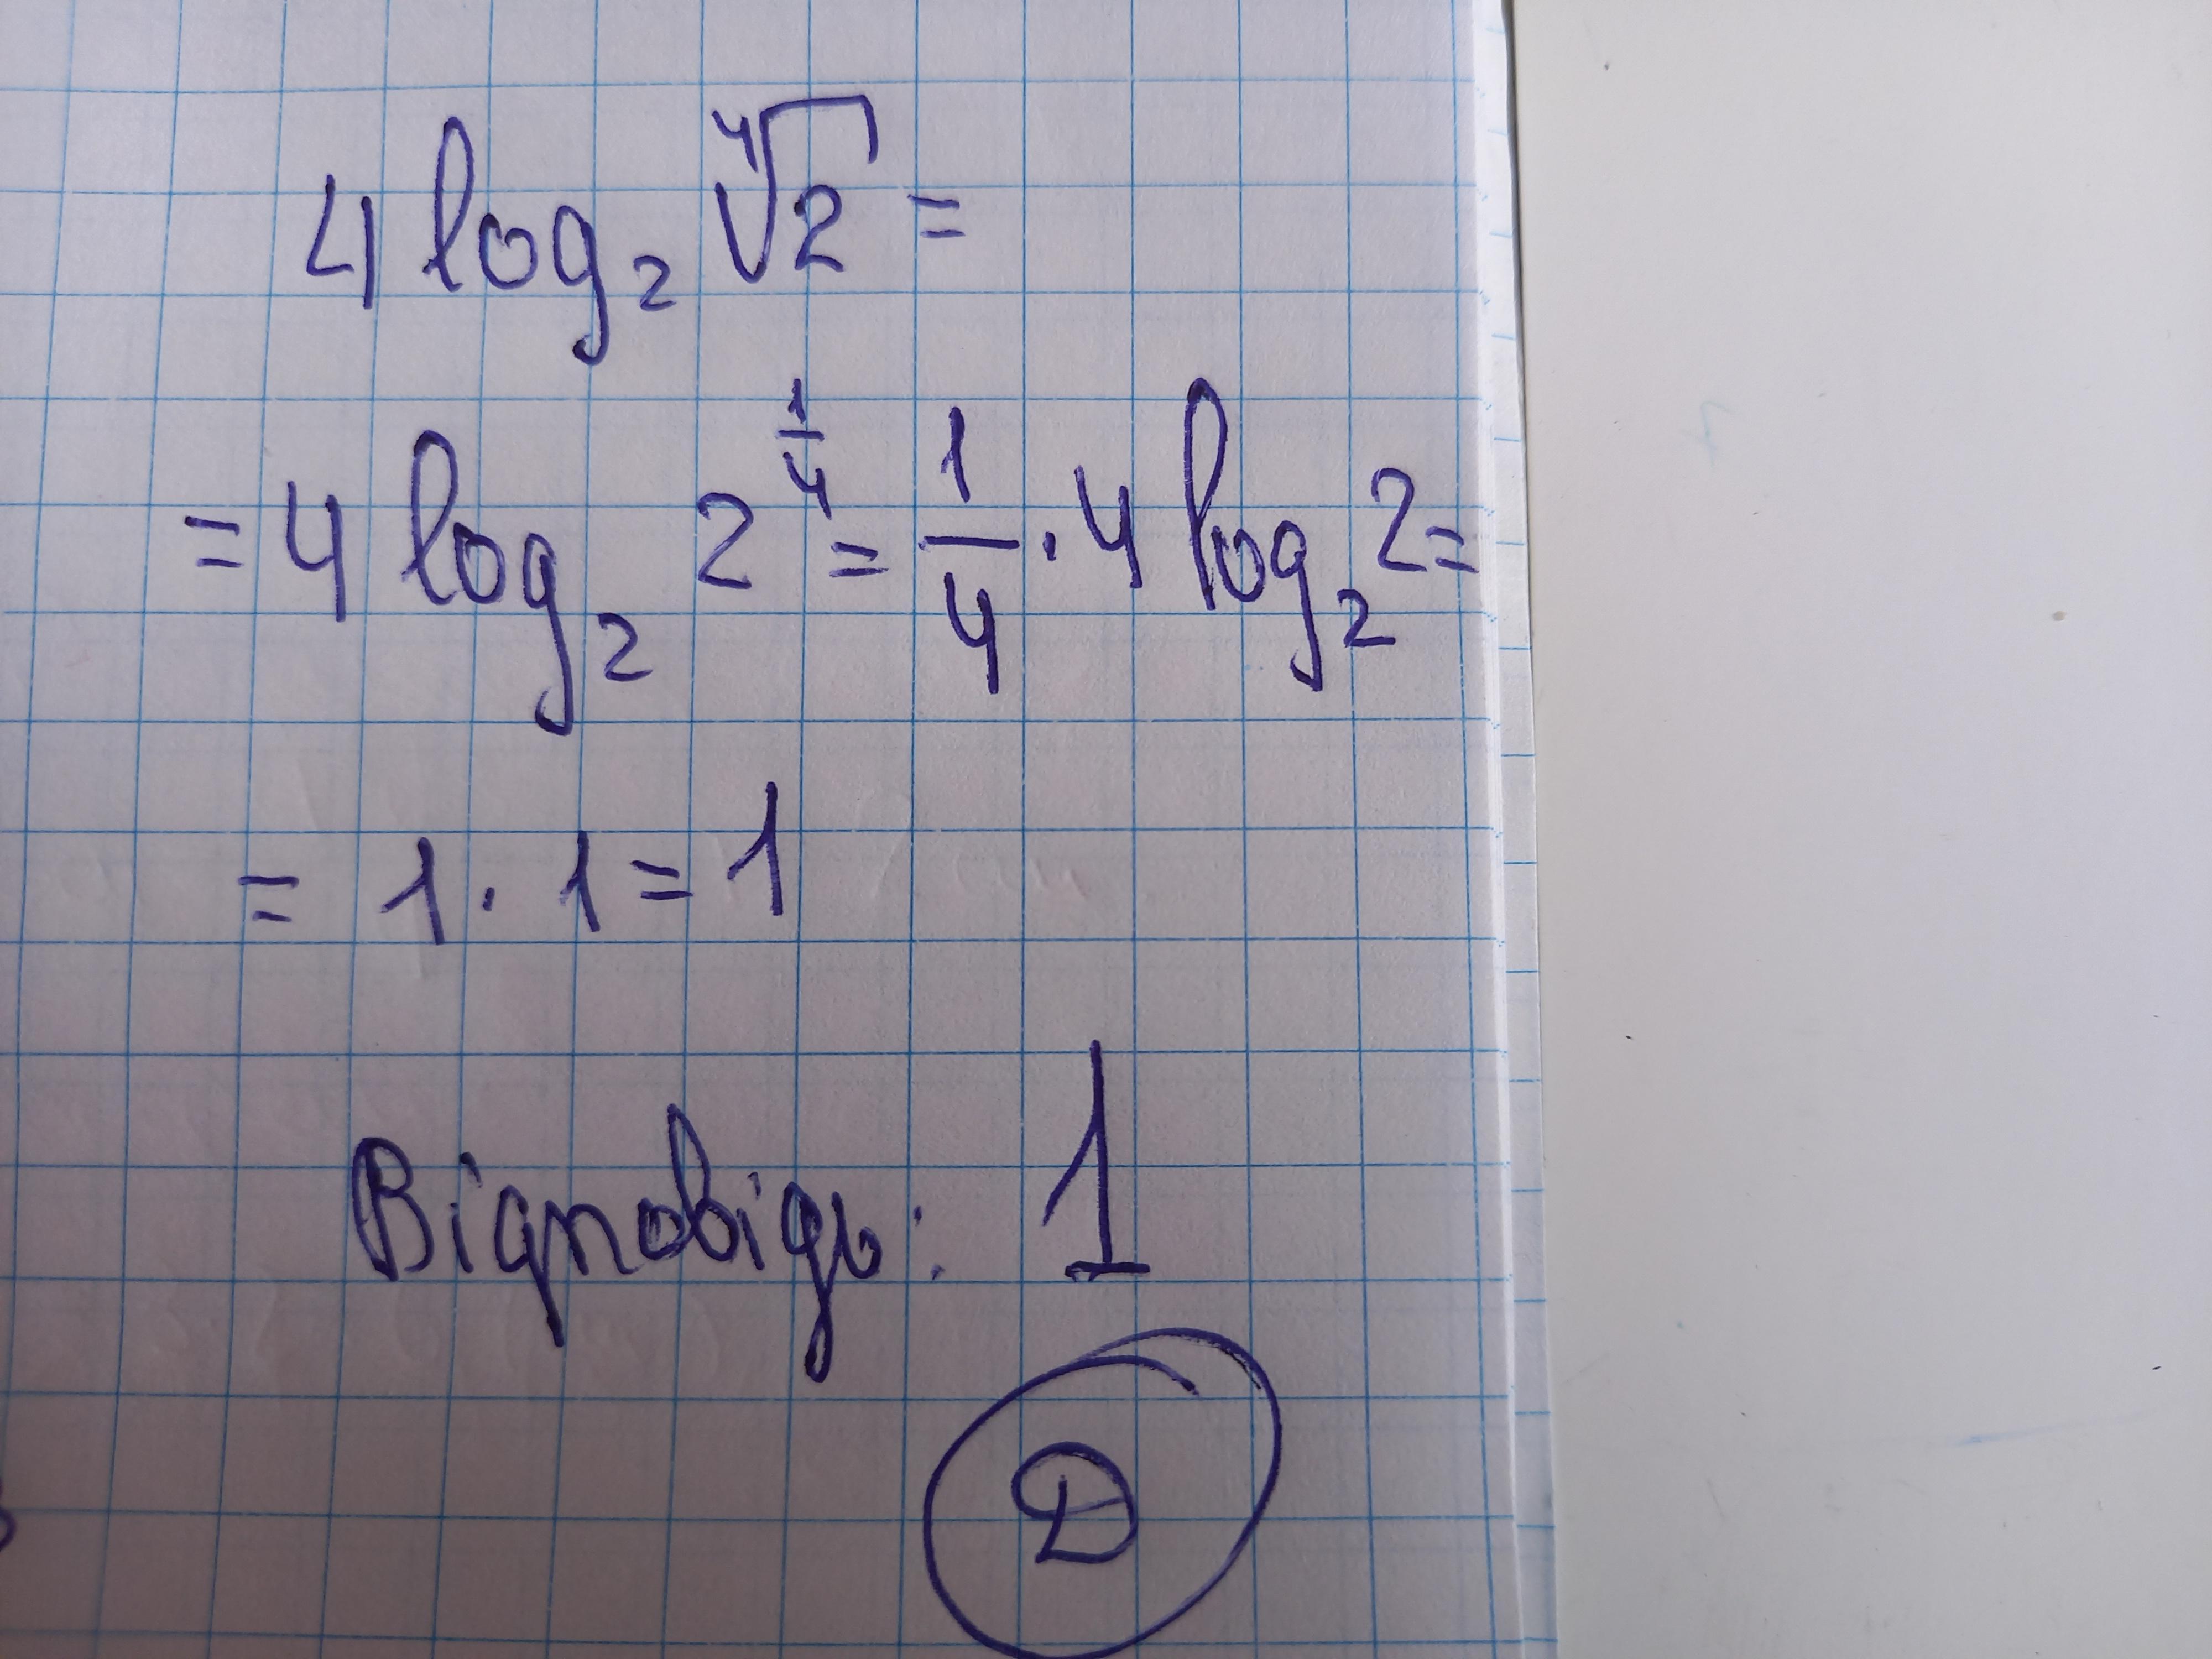 4 log₂ ⁴√2 =
= 4 log₂ 2^(1/4) = 1/4 · 4 log₂ 2 =
= 1 · 1 = 1
Відповідь: 1
Д